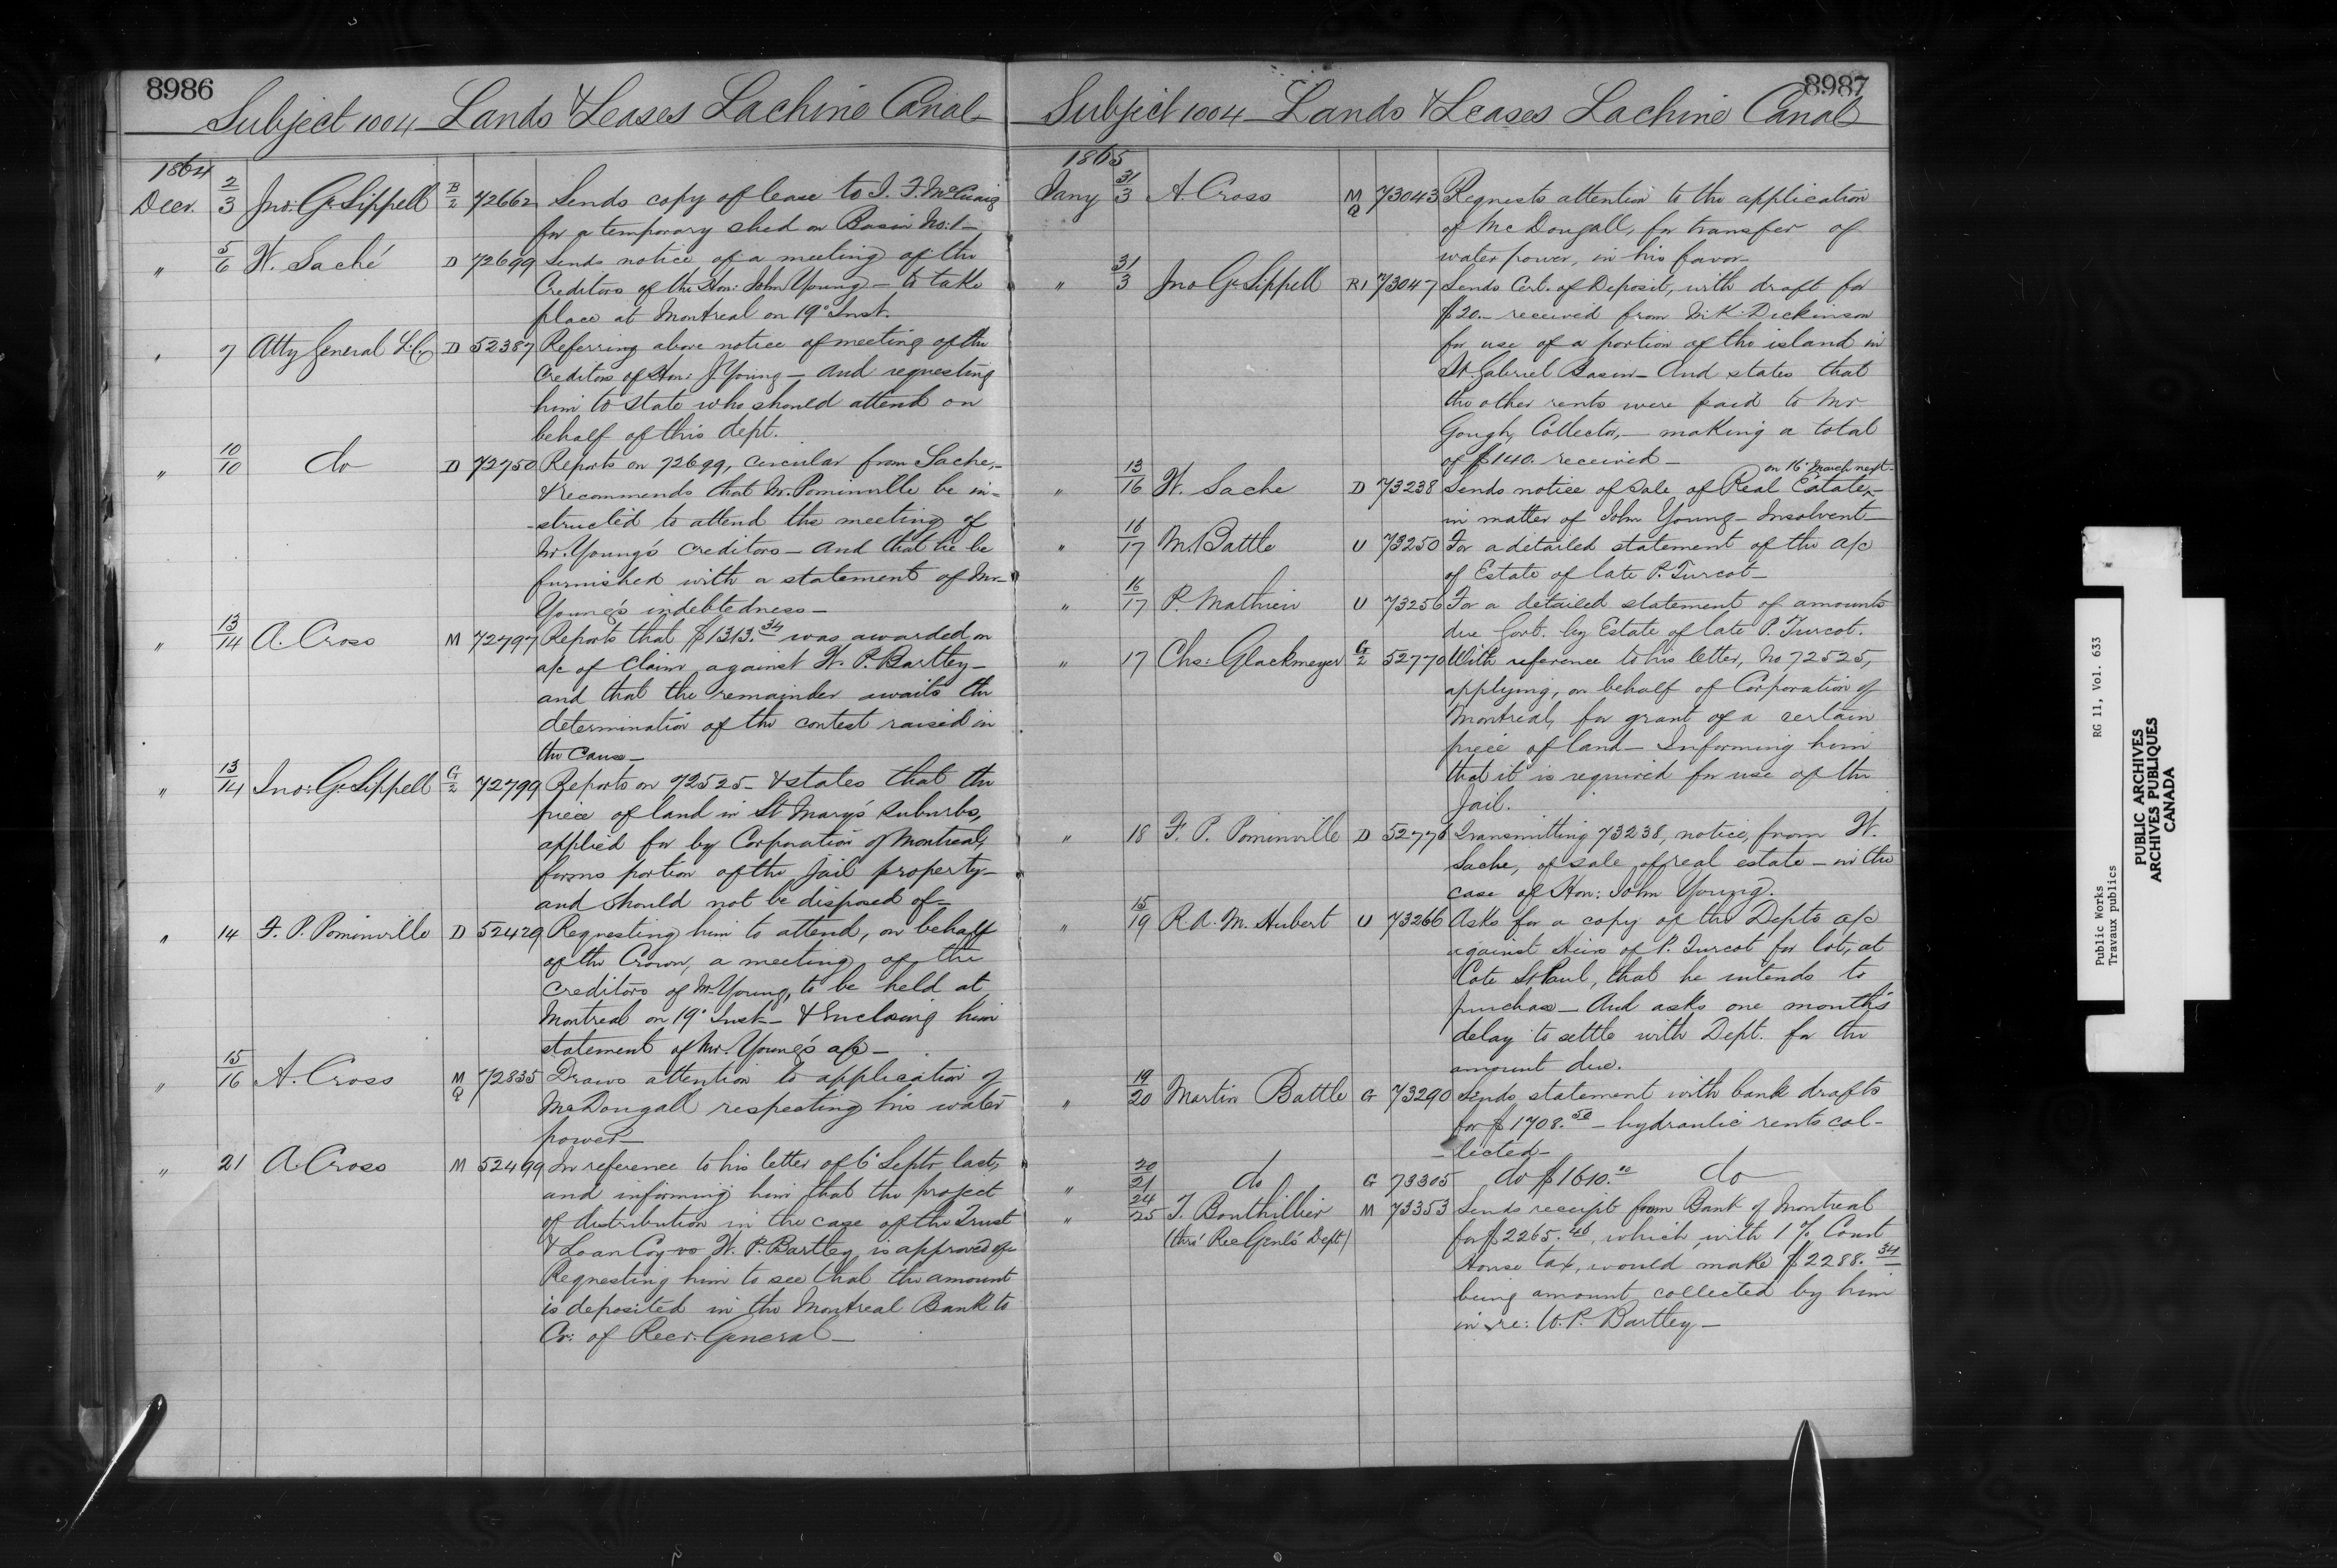 8986
Subject 1004 Lands & Leases Lachine Canal
1864
Decr. 2/3 Jno: G. Sippell B/2 72662 Sends copy of lease to I. F. McCuaig
for a temporary shed on Basin No: 1 —
" 5/6 W. Saché D 72699 Sends notice of a meeting of the
Creditors of the Hon: John Young — to take
place at Montreal on 19° Inst.
" 7 Atty General L.C. D 52387 Referring above notice of meeting of the
Creditors of Hon: J. Young — And requesting
him to state who should attend on
behalf of this dept.
" 10/10 do D 72750 Reports on 72699, circular from Sache, —
& recommends that Mr. Pominville be in=
-structed to attend the meeting of
Mr. Young's creditors — and that he be
furnished with a statement of Mr —
Young's indebtedness —
" 13/14 A. Cross M 72797 Reports that $1313.34 was awarded on
a/c of Claim against W. P. Bartley —
and that the remainder awaits the
determination of the contest raised in
the Cause —
" 13/14 Jno: G. Sippell G/2 72799 Reports on 72525 — & states that the
piece of land in St Mary's suburbs,
applied for by Corporation of Montreal,
forms portion of the Jail property —
and should not be disposed of —
" 14 F. P. Pominville D 52429 Requesting him to attend, on behalf
of the Crown, a meeting of the
creditors of Mr Young, to be held at
Montreal on 19° Inst — & Enclosing him
statement of Mr. Young's a/c —
" 15/16 A. Cross M Q 72835 Draws attention to application of
McDougall respecting his water
power —
" 21 A. Cross M 52499 In reference to his letter of 6° Septr last,
and informing him that the project
of distribution in the case of the Trust
& Loan Coy vs W. P. Bartley, is approved of —
Requesting him to see that the amount
is deposited in the Montreal Bank to
Cr: of Recr. General —
8987
Subject 1004 — Lands & Leases Lachine Canal
1865
Jany 31/3 A. Cross M Q 73043 Requests attention to the application
of McDougall, for transfer of
water power, in his favor —
" 31/3 Jno G. Sippell R1 73047 Sends Cert. of Deposit, with draft for
$20. — received from M. K. Dickinson
for use of a portion of the island in
St. Gabriel Basin — And states that
the other rents were paid to Mr
Gough, Collector, — making a total
of $140. received —
on 16° March next —
" 13/16 W. Sache D 73238 Sends notice of Sale of Real Estate x —
in matter of John Young — Insolvent —
" 16/17 M. Battle U 73250 For a detailed statement of the a/c
of Estate of late P. Turcot —
" 16/17 P. Mathieu U 73256 For a detailed statement of amounts
due Govt. by Estate of late P. Turcot.
" 17 Chs: Glackmeyer G/2 52770 With reference to his letter, No 72525,
applying, on behalf of Corporation of
Montreal, for grant of a certain
piece of land — Informing him
that it is required for use of the
Jail.
" 18 F. P. Pominville D 52776 Transmitting 73238, notice, from W.
Sache, of sale of real estate — in the
case of Hon: John Young.
" 15/19 R. A. M. Hubert U 73266 Asks for a copy of the Dept's a/c
against Heirs of P. Turcot for lot, at
Cote St Paul, that he intends to
purchase — And asks one month's
delay to settle with Dept. for the
amount due.
" 19/20 Martin Battle G 73290 Sends statement with bank drafts
for $1708.50 — hydraulic rents col-
- lected —
" 20/21 do G 73305 do $1610.10 do
" 24/25 T. Bouthillier M 73353 Sends receipt from Bank of Montreal
(thro' Rec Genl's Dept) for $2265.46, which, with 1 % Court
House tax, would make $2288.34
being amount collected by him
in re: W. P. Bartley —
Public Works RG 11, Vol. 633
Travaux publics
PUBLIC ARCHIVES
ARCHIVES PUBLIQUES
CANADA